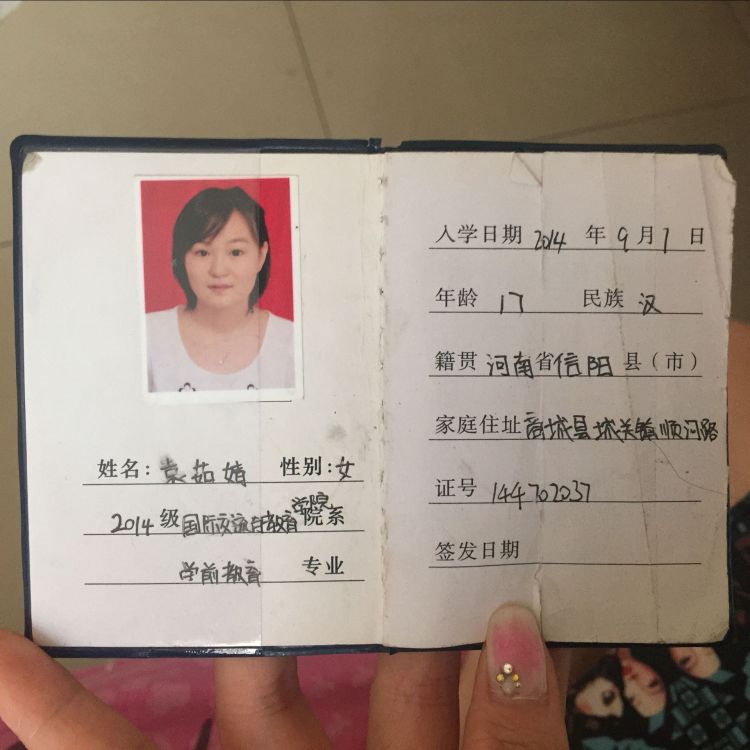 姓名：袁茹婧 性别：女
2014 级 国际交流与教育学院 院系
学前教育 专业
入学日期 2014 年 9 月 1 日
年龄 17 民族 汉
籍贯 河南省信阳县（市）
家庭住址 商城县城关镇顺河路
证号 144702037
签发日期